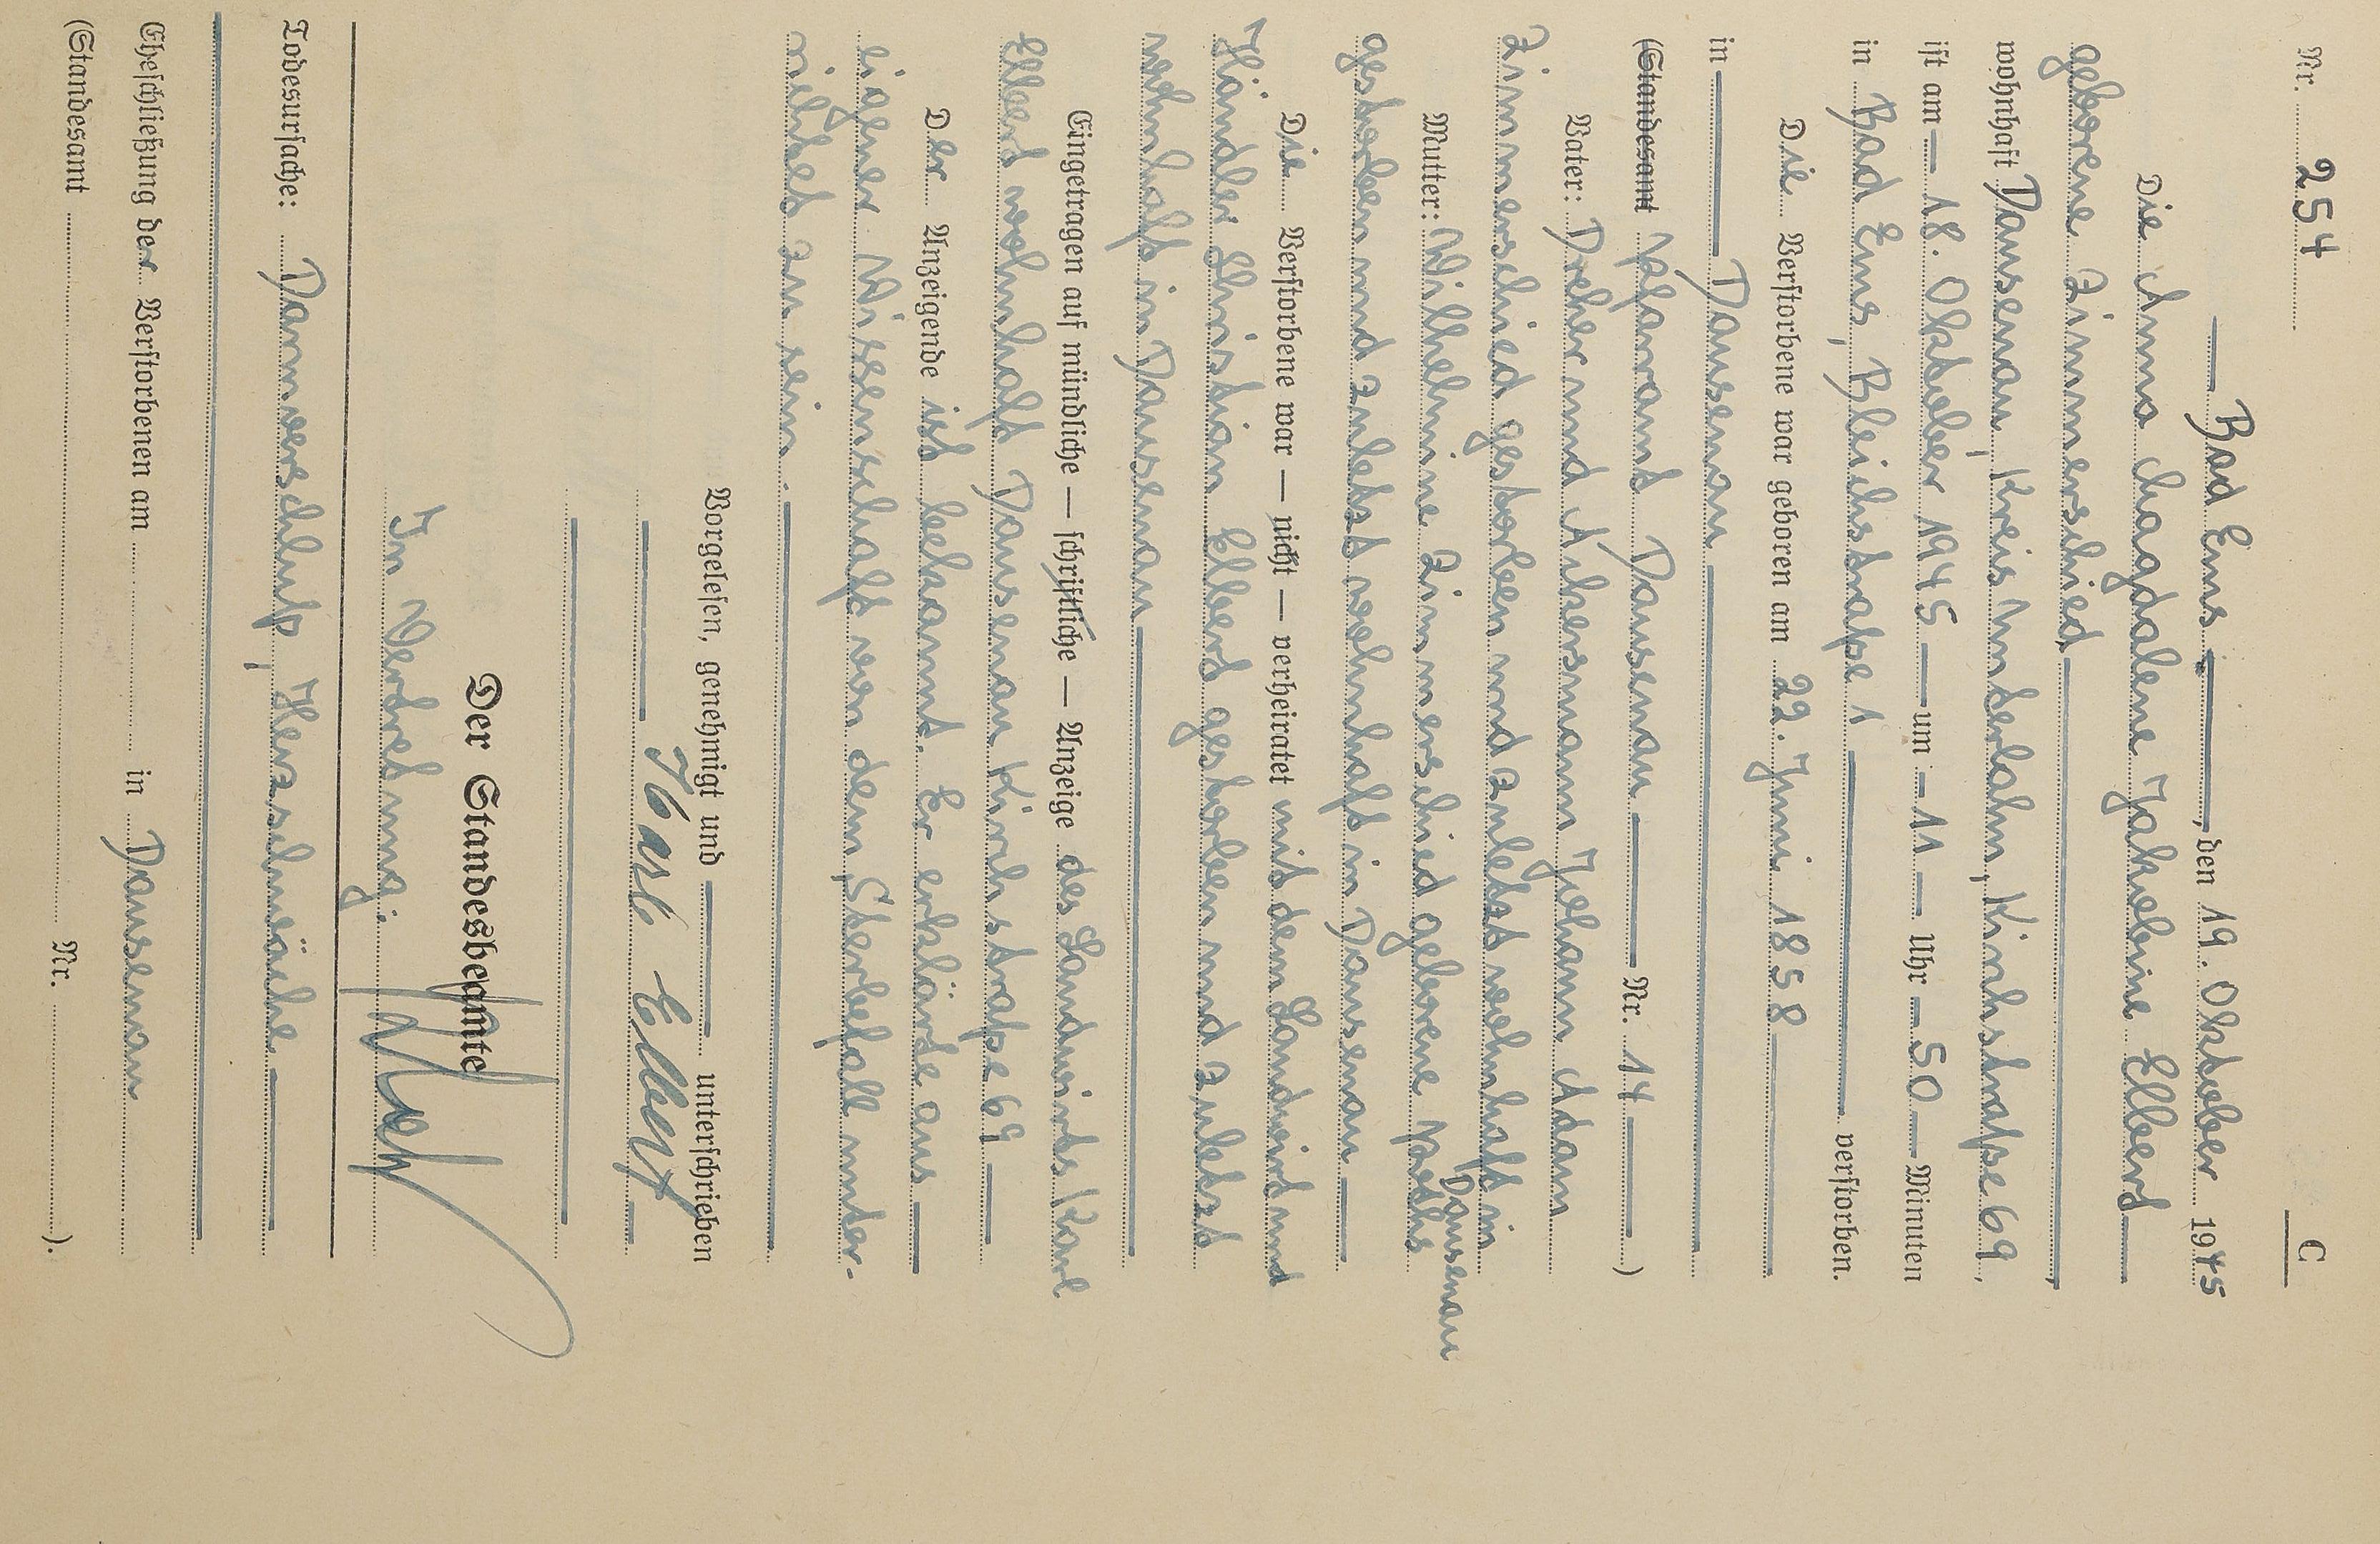 C
Nr. 254
— Bad Ems —, den 19. Oktober 1945
Die Anna Magdalene Jakobine Elbert —
geborene Zimmerschied —
wohnhaft Dausenau, Kreis Unterlahn, Kirchstraße 69,
ist am — 18. Oktober 1945 — um — 11 — Uhr — 50 — Minuten
in Bad Ems, Bleichstraße 1 — verstorben.
Die Verstorbene war geboren am 22. Juni 1858 —
in — Dausenau —
(Standesamt Pfarramt Dausenau — Nr. 14 — )
Vater: Dreher und Ackersmann Johann Adam
Zimmerschied gestorben und zuletzt wohnhaft in
Dausenau
Mutter: Wilhelmine Zimmerschied geborene
gestorben und zuletzt wohnhaft in Dausenau —
Die Verstorbene war — nicht — verheiratet mit dem Landwirt und
Händler Christian Elbert gestorben und zuletzt
wohnhaft in Dausenau —
Eingetragen auf mündliche — schriftliche — Anzeige des Landwirts Karl
Elbert wohnhaft Dausenau Kirchstraße 69 —
Der Anzeigende ist bekannt. Er erklärte aus —
eigener Wissenschaft von dem Sterbefall unter-
richtet zu sein. —
Vorgelesen, genehmigt und — unterschrieben
— Karl Elbert —
Der Standesbeamte
In Vertretung:
Todesursache: Darmverschluß, Herzschwäche —
Eheschließung der Verstorbenen am in Dausenau
(Standesamt Nr. ).